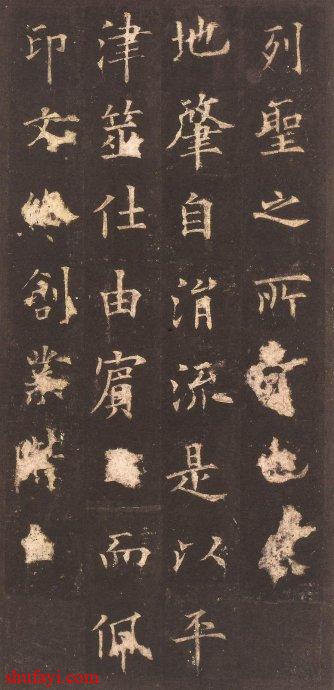 列聖之所也
地肇自涓流是以平
津筮仕由賓而佩
印文終創業
shufayi.com